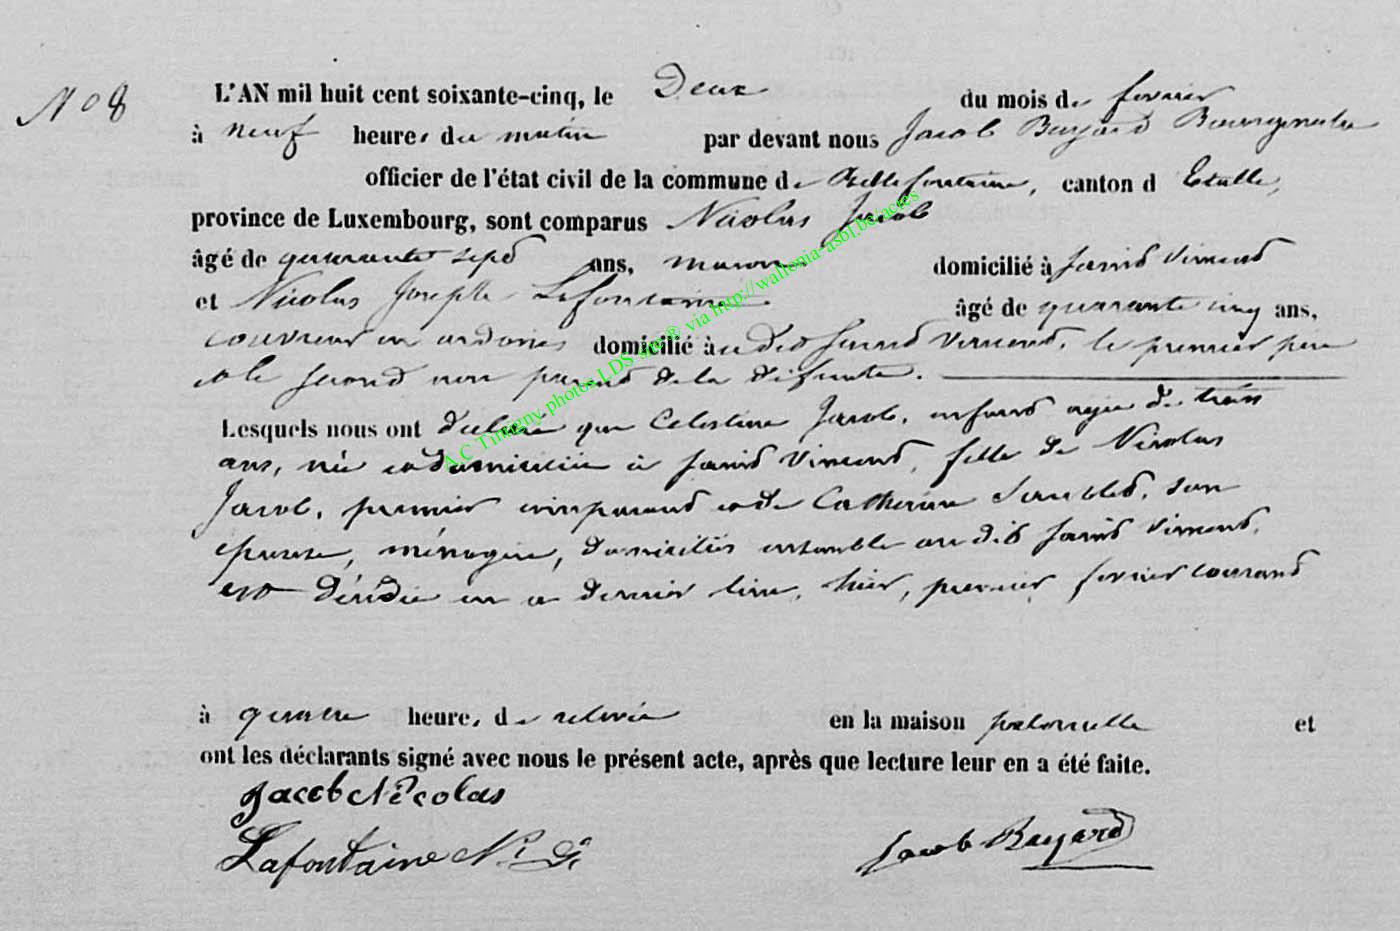 N° 8
L'AN mil huit cent soixante-cinq, le Deux du mois de fevrier
à neuf heures du matin par devant nous Jacob Bayard Bourgmestre
officier de l'état civil de la commune de Bellefontaine, canton d Etalle,
province de Luxembourg, sont comparus Nicolas Jacob
âgé de quarante sept ans, maçon domicilié à Saint Vincent
et Nicolas Joseph Lafontaine âgé de quarante cinq ans,
couvreur en ardoises domicilié à u dit Saint Vincent, le premier père
et le second non parent de la défunte.
Lesquels nous ont déclaré que Celestine Jacob, enfant agée de trois
ans, née et domiciliée à Saint Vincent, fille de Nicolas
Jacob, premier comparant et de Catherine son
épouse, ménagère, domiciliés ensemble au dit Saint Vincent,
est décédée en ce dernier lieu, hier, premier fevrier courant
à quatre heures de relevée en la maison paternelle et
ont les déclarants signé avec nous le présent acte, après que lecture leur en a été faite.
Jacob Nicolas
Lafontaine Nas Jh
Jacob Bayard
A.C Tintigny photos LDS site® via http://wallonia-asbl.be/actes